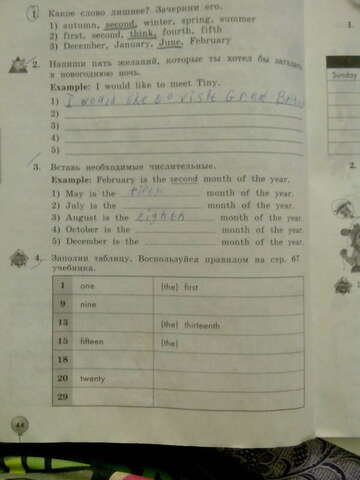 1. Какое слово лишнее? Зачеркни его.
1) autumn, second, winter, spring, summer
2) first, second, think, fourth, fifth
3) December, January, June, February
2. Напиши пять желаний, которые ты хотел бы загадать
в новогоднюю ночь.
Example: I would like to meet Tiny.
1) I would like to visit Great
2)
3)
4)
5)
3. Вставь необходимые числительные.
Example: February is the second month of the year.
1) May is the month of the year.
2) July is the month of the year.
3) August is the eighth month of the year.
4) October is the month of the year.
5) December is the month of the year.
4. Заполни таблицу. Воспользуйся правилом на стр. 67
учебника.
1 one (the) first
9 nine
13 (the) thirteenth
15 fifteen (the)
18
20 twenty
29
44
1.
Sunday
2.